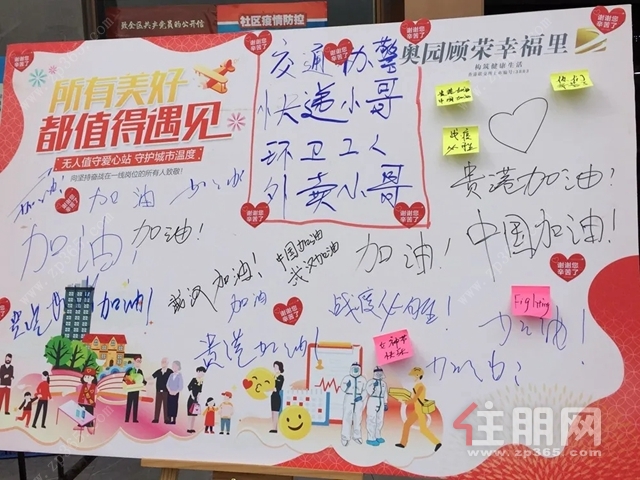 致全区共产党员的公开信
社区疫情防控
谢谢您
辛苦了
所有美好
都值得遇见
无人值守爱心站 守护城市温度
向坚持奋战在一线岗位的所有人致敬!
交通协警
快递小哥
环卫工人
外卖小哥
奥园顾荣幸福里
构筑健康生活
谢谢您
辛苦了
谢谢您
辛苦了
战疫
必胜
贵港加油!
谢谢您
辛苦了
谢谢您
辛苦了
加油!
加油
加油!
加油!
中国加油
武汉加油
加油!
中国加油!
谢谢您
辛苦了
武汉加油!
加油
加油!
战疫必胜!
Fighting
加油!
贵港加油!
女神节
快乐
加油!
谢谢您
辛苦了
住朋网
www.zp365.com